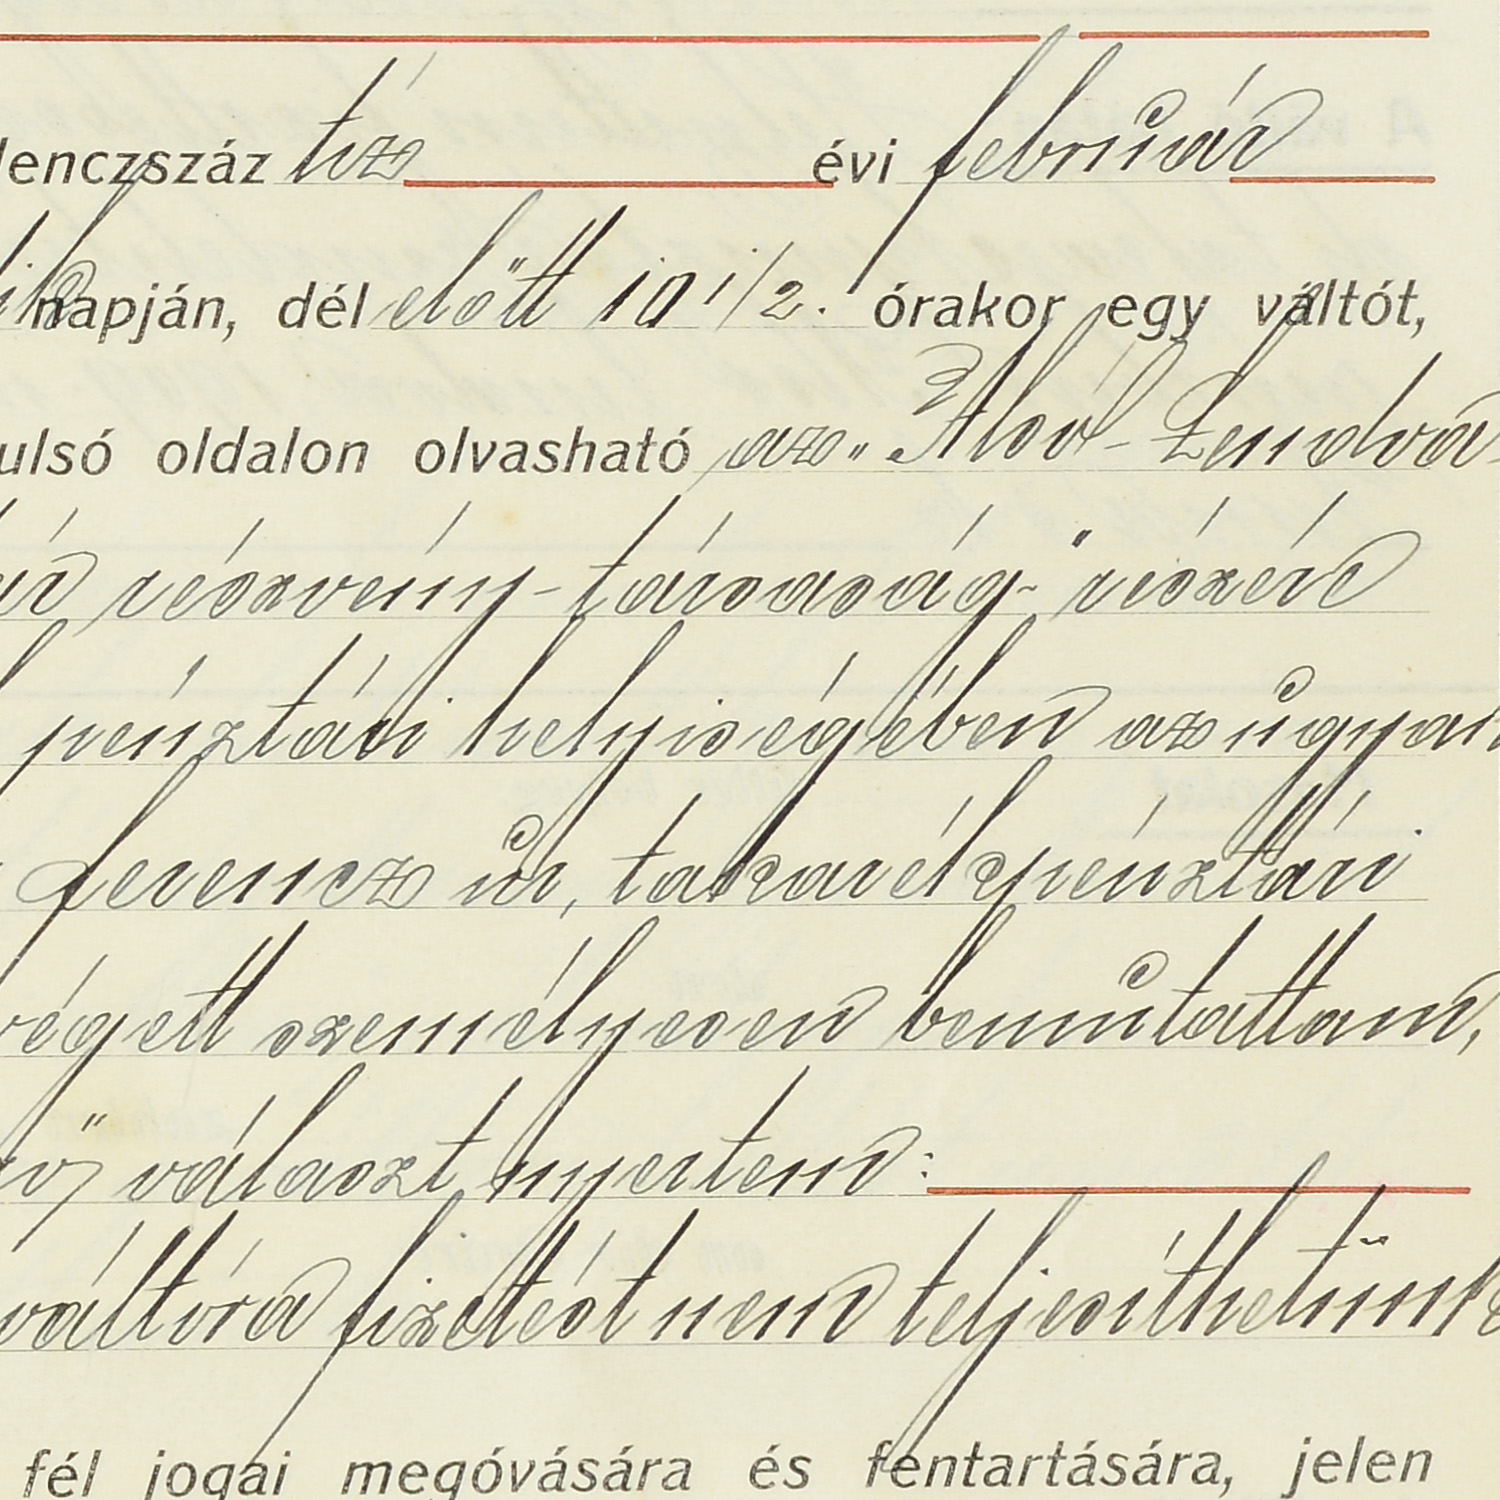 lenczszáz tíz évi február
ik napján, dél előtt 10 1/2. órakor egy váltót,
ulsó oldalon olvasható az „Alsó-Lendva-
részvény-társaság-" részére
pénztári helyiségében az ugyan
Ferencz úr, takarékpénztári
végett személyesen bemutattam,
választ nyertem:
váltóra fizetést nem teljesíthetünk
fél jogai megóvására és fentartására, jelen